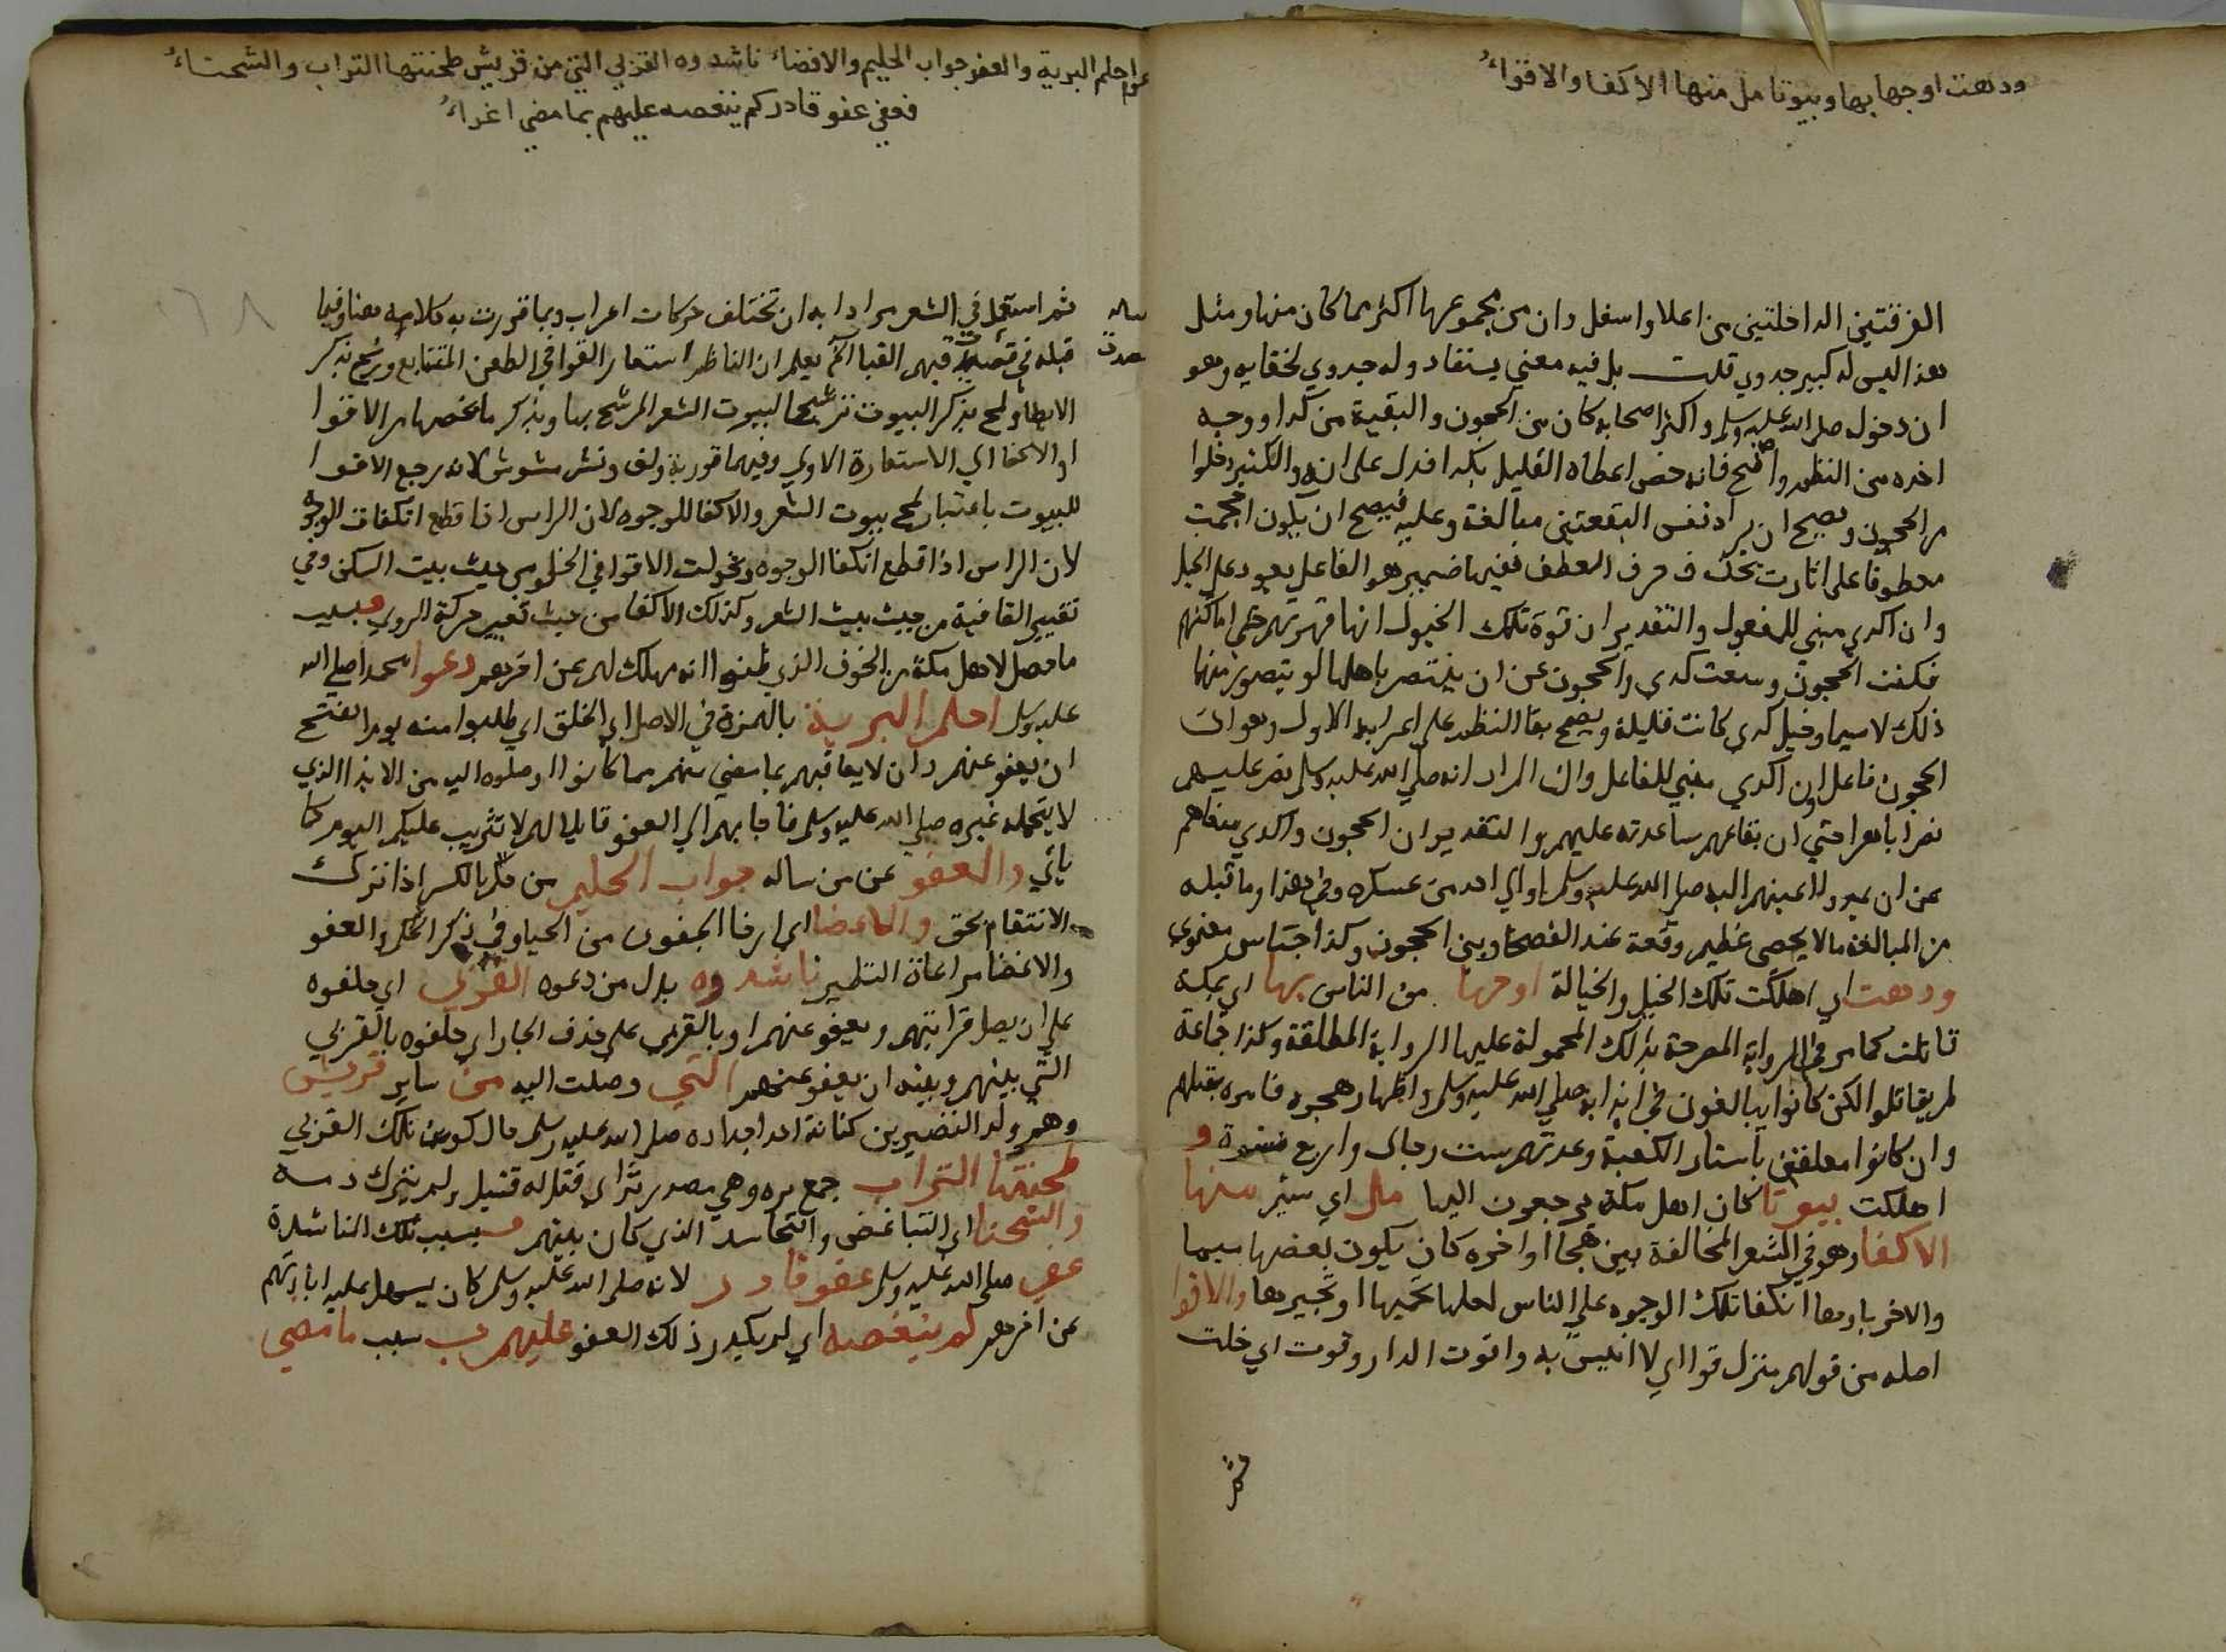 ودهت اوجها بها وبيوتا مل منها الاكفا والاقواءُ
الفرقتين الداخلتين من اعلا واسفل وان من مجموعها اكثر مما كان منها ومثل
هذا ليس له كبير جدوي قلت بل فيه معني يستفاد وله جدوي لخفايه وهو
ان دخوله صلي الله عليه وسلم واكثر اصحابه كان من الحجون والبقية من كدا ووجه
اخده من النظم واضح فانه خص اعطاه القليل بكدا فدل علي انه والكثير دخلوا
من الحجون ويصح ان يراد نفس البقعتين مبالغة وعليه فيصح ان يكون احجمت
معطوفا علي اثارت بحذف حرف العطف ففيها ضمير هو الفاعل يعود علي الخيل
وان اكدي مبني للمفعول والتقدير ان قوة تلك الخيول انها قهرتهم حتي اماكنهم
فكفت الحجون وسعت كدي والحجون عن ان ينتصر باهلها لو يتصور منها
ذلك لاسيما وخيل كدي كانت قليلة ويصح بقا النظم علي اعرابه الاول وهو ان
الحجون فاعل وان اكدي مبني للفاعل وان المراد انه صلي الله عليه وسلم نصر عليهم
نصرا باهرا حتي ان بقاعهم ساعدته عليهم والتقدير ان الحجون واكدي منعاهم
عن ان يمدوا اعينهم اليه صلي الله عليه وسلم او الي احد من عسكره وفي هذا وما قبله
من المبالغة ما لا يحصي عظيم وقعه عند الفصحا وبين الحجون وكدا جناس معنوي
ودهت اي اهلكت تلك الخيل والخيالة اوجها من الناس بها اي بمكة
قاتلت كما مر في الرواية المصرحة بذلك المحمولة عليها الرواية المطلقة وكذا جماعة
لم يقاتلوا لكن كانوا يبالغون في ايذايه صلي الله عليه وسلم واظهار هجره فامره بقتلهم
وان كانوا معلقين باستار الكعبة وعدتهم ست رجال واربع نسوة و
اهلكت بيوتا كان اهل مكة يرجعون اليها مل اي سئم منها
الاكفا وهو في الشعر المخالفة بين هجا اواخره كان يكون بعضها ميما
والاخر باومعا انكفا تلك الوجوه علي الناس لعلها تحميها او تجيرها والاقوا
اصله من قولهم منزل قوا اي لا انيس به واقوت الدار وقوت اي خلت
ثم
احلم البرية والعفو جواب الحليم والاغضاء ناشدوه القربي التي من قريش طحنتها التراب والشحناءُ
فعفي عفو قادر لم ينغصه عليهم بما مضي اغراءُ
ثم استعمل في الشعر مرادا به ان تختلف حركات اعراب وبما قررت به كلامه هنا وفيما
قبله في قصيدت فيهم القبا الخ يعلم ان الناظم استعار القوافي للطعن المتتابع ورشح بذكر
الايطا ولمح بذكر البيوت ترشيحا لبيوت الشعر المرشح بها وبذكر ما يخصها من الاقوا
او الاكفا الي الاستعارة الاولي وفيهما تورية ولف ونشر مشوش لانه رجع الاقوا
للبيوت باعتبار لمح بيوت الشعر والاكفا للوجوه لان الراس اذا قطع انكفات الوجوه
لان الراس اذا قطع انكفا الوجوه وتحولت الاقوا في الخلو من حيث بيت السكن وفي
تغيير القافية من حيث بيت الشعر وكذلك الاكفا من حيث تغيير حركة الروي فبسبب
ما حصل لاهل مكة من الخوف الذي ظنوا انه مهلك لهم عن اخرهم دعوا محمدا صلي الله
عليه وسلم احلم البرية بالهمزة في الاصل اي الخلق اي طلبوا منه يوم الفتح
ان يعفو عنهم وان لا يعاقبهم بما مضي منهم مما كانوا اوصلوه اليه من الايذا الذي
لا يتحمله غيره صلي الله عليه وسلم فاجابهم الي العفو قايلا لهم لا تثريب عليكم اليوم كما
ياتي والعفو عن من ساله جواب الحليم من حلم بالكسر اذا ترك
الانتقام بحق والاغضا اي ارخا الجفون من الحيا وفي ذكر الحلم والعفو
والاغضا مراعاة النظير ناشدوه بدل من دعوه القربي اي حلفوه
علي ان يصل قرابتهم ويعفو عنهم او بالقربي علي حذف الجار اي حلفوه بالقربي
التي بينهم وبينه ان يعفو عنهم التي وصلت اليه من ساير قريش
وهم ولد النضر بن كنانة احد اجداده صلي الله عليه وسلم حال كون تلك القربي
طحنتها التراب جمع تره وهي مصدر وتر اي قتل له قتيل ولم يترك دمه
والشحنا اي التباغض والتحاسد الذي كان بينهم فبسبب تلك المناشدة
عفي صلي الله عليه وسلم عفو قادر لانه صلي الله عليه وسلم كان يسهل عليه ابادتهم
عن اخرهم لم ينغصه اي لم يكدر ذلك العفو عليهم ب سبب ما مضي